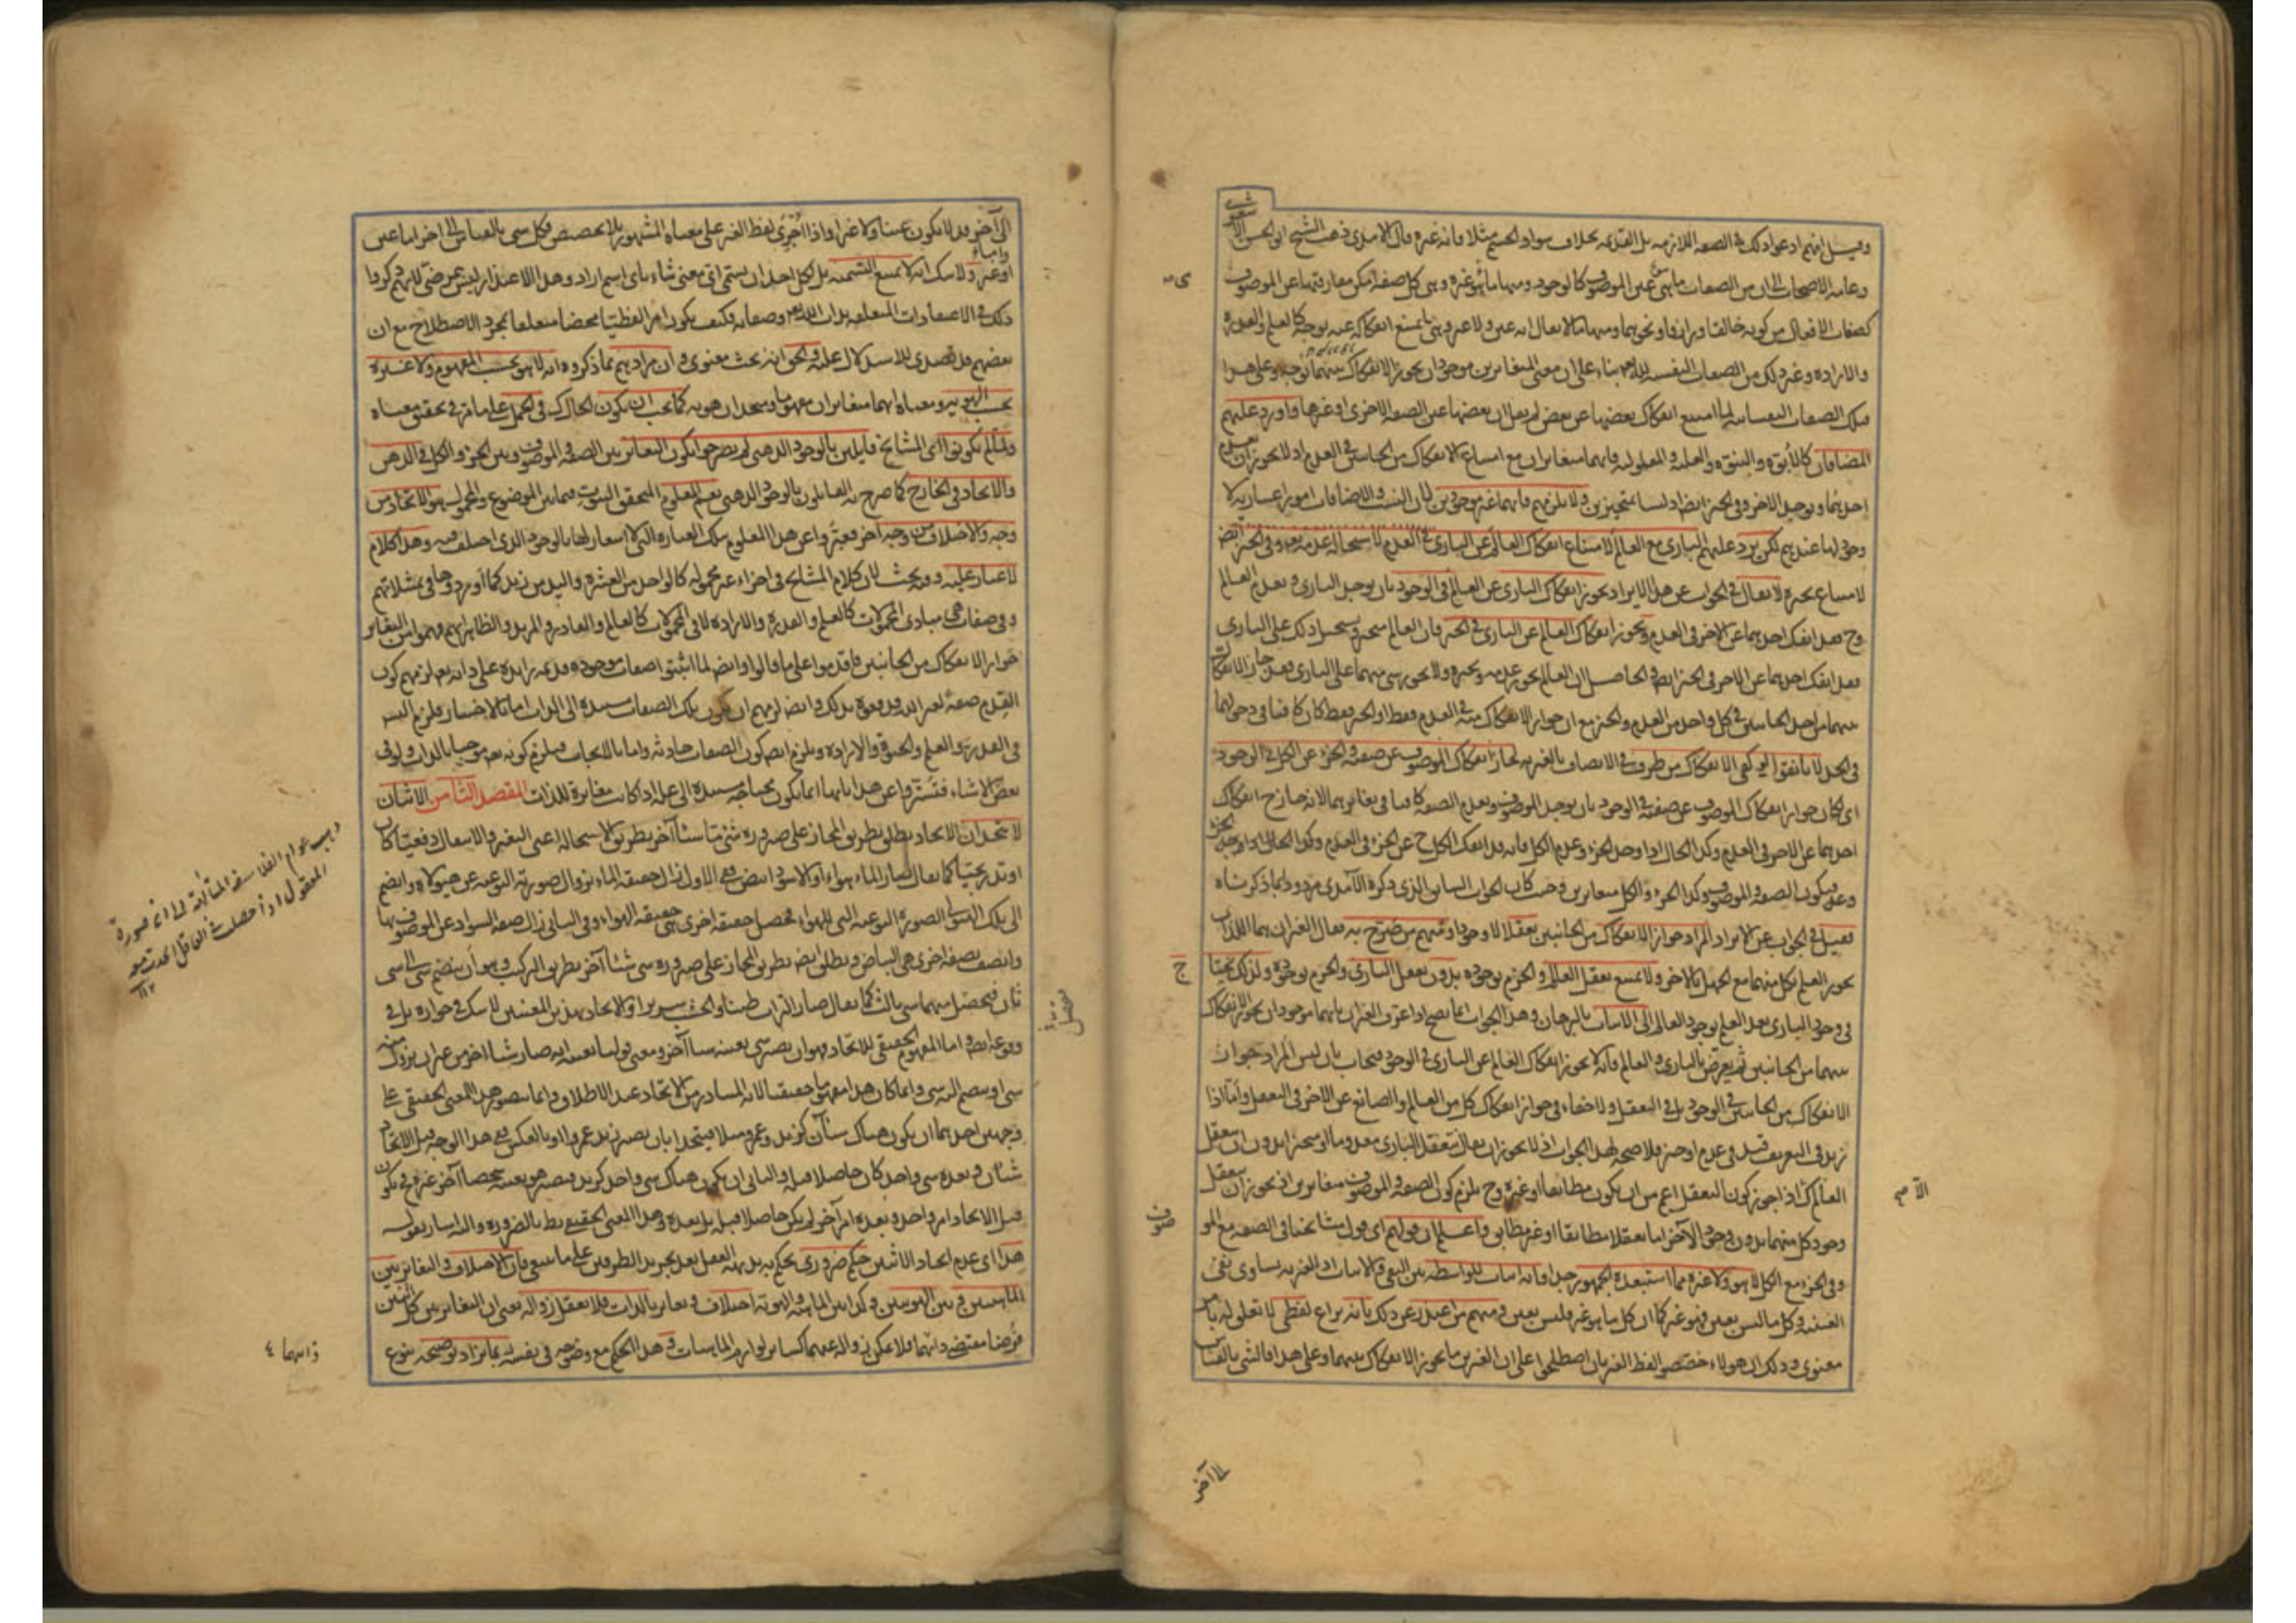 وقيل انهم ادعوا ذلك في الصفة اللازمة بل القديمة بخلاف سواد الجسم مثلا فانه غيره قال الآمدي ذهب الشيخ ابو الحسن الاشعري
وعامة الاصحاب الى ان من الصفات ما هي عين الموصوف كالوجود ومنها ما هو غيره وهي كل صفة امكن مفارقتها عن الموصوف
كصفات الافعال من كونه خالقا ورازقا ونحوهما ومنها ما لا يقال انه عين ولا غير وهي ما يمتنع انفكاكه عنه بوجه كالعلم والقدرة
والارادة وغير ذلك من الصفات النفسية لله تعالى بناء على ان معنى المتغايرين موجودان يجوز الانفكاك بينهما بوجه وعلى هذا
فتلك الصفات النفسانية لما امتنع انفكاك بعضها عن بعض لم يقل ان بعضها عين الصفة الاخرى او غيرها واورد عليهم
المضافان كالابوة والبنوة والعلية والمعلولية فانهما متغايران مع امتناع الانفكاك من الجانبين في العدم اذ لا يجوز ان يعدم
احدهما ويوجد الاخر وفي الحيز ايضا اذ ليسا بمتحيزين ولا يلزمهم فانهما غير موجودين لان النسب والاضافات امور اعتبارية لا
وجود لها عندهم لكن يرد عليهم الباري مع العالم لامتناع انفكاك العالم عن الباري في العدم لاستحالة عدمه تعالى وفي الحيز ايضا
لامتناع تحيزه لا يقال في الجواب عن هذا الايراد يجوز انفكاك الباري عن العالم في الوجود بان يوجد الباري ويعدم العالم
وح فقد انفك احدهما عن الاخر في العدم ويجوز انفكاك العالم عن الباري في الحيز فان العالم متحيز ويستحيل ذلك على الباري
فقد انفك احدهما عن الاخر في الحيز ايضا والحاصل ان العالم يجوز عدمه وتحيزه ولا يجوز شيء منهما على الباري فقد جاز الانفكاك
بينهما من احد الجانبين في كل واحد من العدم والحيز مع ان جواز الانفكاك منه في العدم فقط او الحيز فقط كان كافيا في دخولهما
في الحد لانا نقول لو كفى الانفكاك من طرف في الاتصاف بالغيرية لجاز انفكاك الموصوف عن صفته والجزء عن الكل في الوجود
اي لكان جواز انفكاك الموصوف عن صفته في الوجود بان يوجد الموصوف ويعدم الصفة كافيا في تغايرهما لانه جاز ح انفكاك
احدهما عن الاخر في العدم وكذا الحال اذا وجد الجزء وعدم الكل فانه قد انفك الكل ح عن الجزء في العدم وكذا الحال اذا وجد الجزء
وعدم فيكون الصفة والموصوف وكذا الجزء والكل متغايرين وحيث كان الجواب السابق الذي ذكره الآمدي مردودا بما ذكرناه
فقيل في الجواب عن الايراد المراد جواز الانفكاك من الجانبين تعقلا لا وجودا ومنهم من صرح به فقال الغيران هما اللذان
يجوز العلم بكل منهما مع الجهل بالاخر ولا يمتنع تعقل العالم والجزم بوجوده بدون تعقل الباري والجزم بوجوده ولذلك يحتاج
في وجود الباري بعد العلم بوجود العالم الى الاثبات بالبرهان وهذا الجواب انما يصح اذا عرف الغيران بانهما موجودان يجوز الانفكاك
بينهما من الجانبين ثم يعترض بالباري والعالم فانه لا يجوز انفكاك العالم عن الباري في الوجود فيجاب بان ليس المراد جواز
الانفكاك من الجانبين في الوجود بل في التعقل ولا خفاء في جواز انفكاك كل من العالم والصانع عن الاخر في التعقل واما اذا
زيد في التعريف قيد في عدم او حيز فلا صحة لهذا الجواب اذ لا يجوز ان يقال يتعقل الباري معدوما او متحيزا بدون ان يتعقل
العالم كذا اذا جوز كون التعقل اعم من ان يكون مطابقا او غيره وح يلزم كون الصفة والموصوف متغايرين اذ يجوز ان يتعقل
وجود كل منهما بدون وجود الآخر اما تعقلا مطابقا او غير مطابق واعلم ان قولهم اي قول مشايخنا في الصفة مع الموصوف
وفي الجزء مع الكل لا هو ولا غيره مما استبعده الجمهور جدا فانه اثبات للواسطة بين النفي والاثبات اذ الغيرية تساوي نفي
العينية وكل ما ليس بعين فهو غير كما ان كل ما هو غير فليس بعين ومنهم من اعتذر عن ذلك بانه نزاع لفظي لا تعلق له بامر
معنوي وذلك ان هؤلاء خصصوا لفظ الغير بان اصطلحوا على ان الغيرين ما يجوز الانفكاك بينهما وعلى هذا فالشيء بالقياس
الى آخر
الى آخر قد لا يكون عينا ولا غيرا واذا اجري لفظ الغير على معناه المشهور بلا تخصيص فكل شيء بالقياس الى اخر اما عين
واما غير ولا شك انه لا يمتنع التسمية بل لكل احد ان يسمي اي معنى شاء باي اسم اراد وهذا الاعتذار ليس بمرضي لانهم ذكروا
ذلك في الاعتقادات المتعلقة بذات الله تعالى وصفاته فكيف يكون امرا لفظيا محضا متعلقا بمجرد الاصطلاح مع ان
بعضهم قد تصدى للاستدلال عليه والحق انه بحث معنوي وان مرادهم بما ذكروه انه لا هو بحسب المفهوم ولا غيره
بحسب الهوية ومعناه انهما متغايران مفهوما ومتحدان هوية كما يجب ان يكون الحال كذلك في الحمل على ما مر في تحقيق معناه
ولما لم يكونوا اي المشايخ قايلين بالوجود الذهني لم يصرحوا بكون التغاير بين الصفة والموصوف وبين الجزء والكل في الذهن
والاتحاد في الخارج كما صرح به القائلون بالوجود الذهني نعم المعلوم المتحقق الثبوت فيما بين الموضوع والمحمول هو الاتحاد من
وجه والاختلاف من وجه آخر فعبروا عن هذا المعلوم بتلك العبارة التي لا اشعار لها بالوجود الذي اختلف فيه وهذا كلام
لا غبار عليه وفيه بحث لان كلام المشايخ في اجزاء غير محمولة كالواحد من العشرة واليد من زيد كما اوردوها في تمثيلاتهم
وفي صفات هي مبادي المحمولات كالعلم والقدرة والارادة لا في المحمولات كالعالم والقادر والمريد والظاهر انهم فهموا من التغاير
جواز الانفكاك من الجانبين فاقدموا على ما قالوا وايضا لما اثبتوا صفات موجودة قديمة زايدة على ذاته تعالى لزمهم كون
القدم صفة لغير الله فدفعوه بذلك وايضا لزمهم ان يكون تلك الصفات مستندة الى الذات اما بالاختيار فيلزم التسلسل
في القدرة والعلم والحيوة والارادة ويلزم ايضا كون الصفات حادثة واما بالايجاب فيلزم كونه تعالى موجبا بالذات ولو في
بعض الاشياء فتستروا عن هذا بانها انما يكون محتاجة مستندة الى علة اذا كانت مغايرة للذات المقصد الثامن الاثنان
لا يتحدان الاتحاد يطلق بطريق المجاز على صيرورة شيء ما شيئا آخر بطريق الاستحالة اعني التغير والانتقال دفعيا كان
او تدريجيا كما يقال صار الماء هواء والاسود ابيض ففي الاول زال حقيقة الماء بزوال صورته النوعية عن هيولاه وانضم
الى تلك الهيولى الصورة النوعية التي للهواء فحصل حقيقة اخرى هي حقيقة الهواء وفي الثاني زال صفة السواد عن الموصوف بها
واتصف بصفة اخرى هي البياض ويطلق ايضا بطريق المجاز على صيرورة شيء شيئا آخر بطريق التركيب وهو ان ينضم شيء الى شيء
ثان فيحصل منهما شيء ثالث كما يقال صار التراب طينا والخشب سريرا والاتحاد بهذين المعنيين لا شك في جوازه بل في
وقوعه ايضا واما المفهوم الحقيقي للاتحاد فهو ان يصير شيء بعينه شيئا آخر ومعنى قولنا بعينه انه صار شيئا اخر من غير ان يزول منه
شيء او ينضم اليه شيء وانما كان هذا مفهوما حقيقيا لانه المتبادر من الاتحاد عند الاطلاق وانما يتصور هذا المعنى الحقيقي على
وجهين احدهما ان يكون هناك شيئان كزيد وعمرو مثلا فيتحدا بان يصير زيد عمروا او بالعكس ففي هذا الوجه قبل الاتحاد
شيئان وبعده شيء واحد كان حاصلا قبله والثاني ان يكون هناك شيء واحد كزيد فيصير هو بعينه شخصا آخر غيره فح يكون
قبل الاتحاد امر واحد وبعده امر آخر لم يكن حاصلا قبله بل بعده وهذا المعنى الحقيقي بط بالضرورة واليه اشار بقوله
هذا اي عدم اتحاد الاثنين حكم ضروري يحكم به بديهة العقل بعد تجريد الطرفين على ما ينبغي فان الاختلاف والتغاير بين
الماهيتين وبين الهويتين وكذا بين الماهية والهوية اختلاف وتغاير بالذات فلا يعقل زواله يعني ان التغاير بين كل اثنين
فرضا مقتضى ذاتهما فلا يمكن زواله عنهما كساير لوازم الماهيات وهذا الحكم مع وضوحه في نفسه ربما يزاد توضيحه بنوع
ذهب عوام الفلاسفة المتألهة الى انه صورة
المعقول اذا حصلت في العاقل اتحدت به